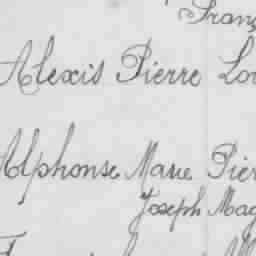 Franç
Alexis Pierre Lou
Alphonse Marie Pier
Joseph Mag